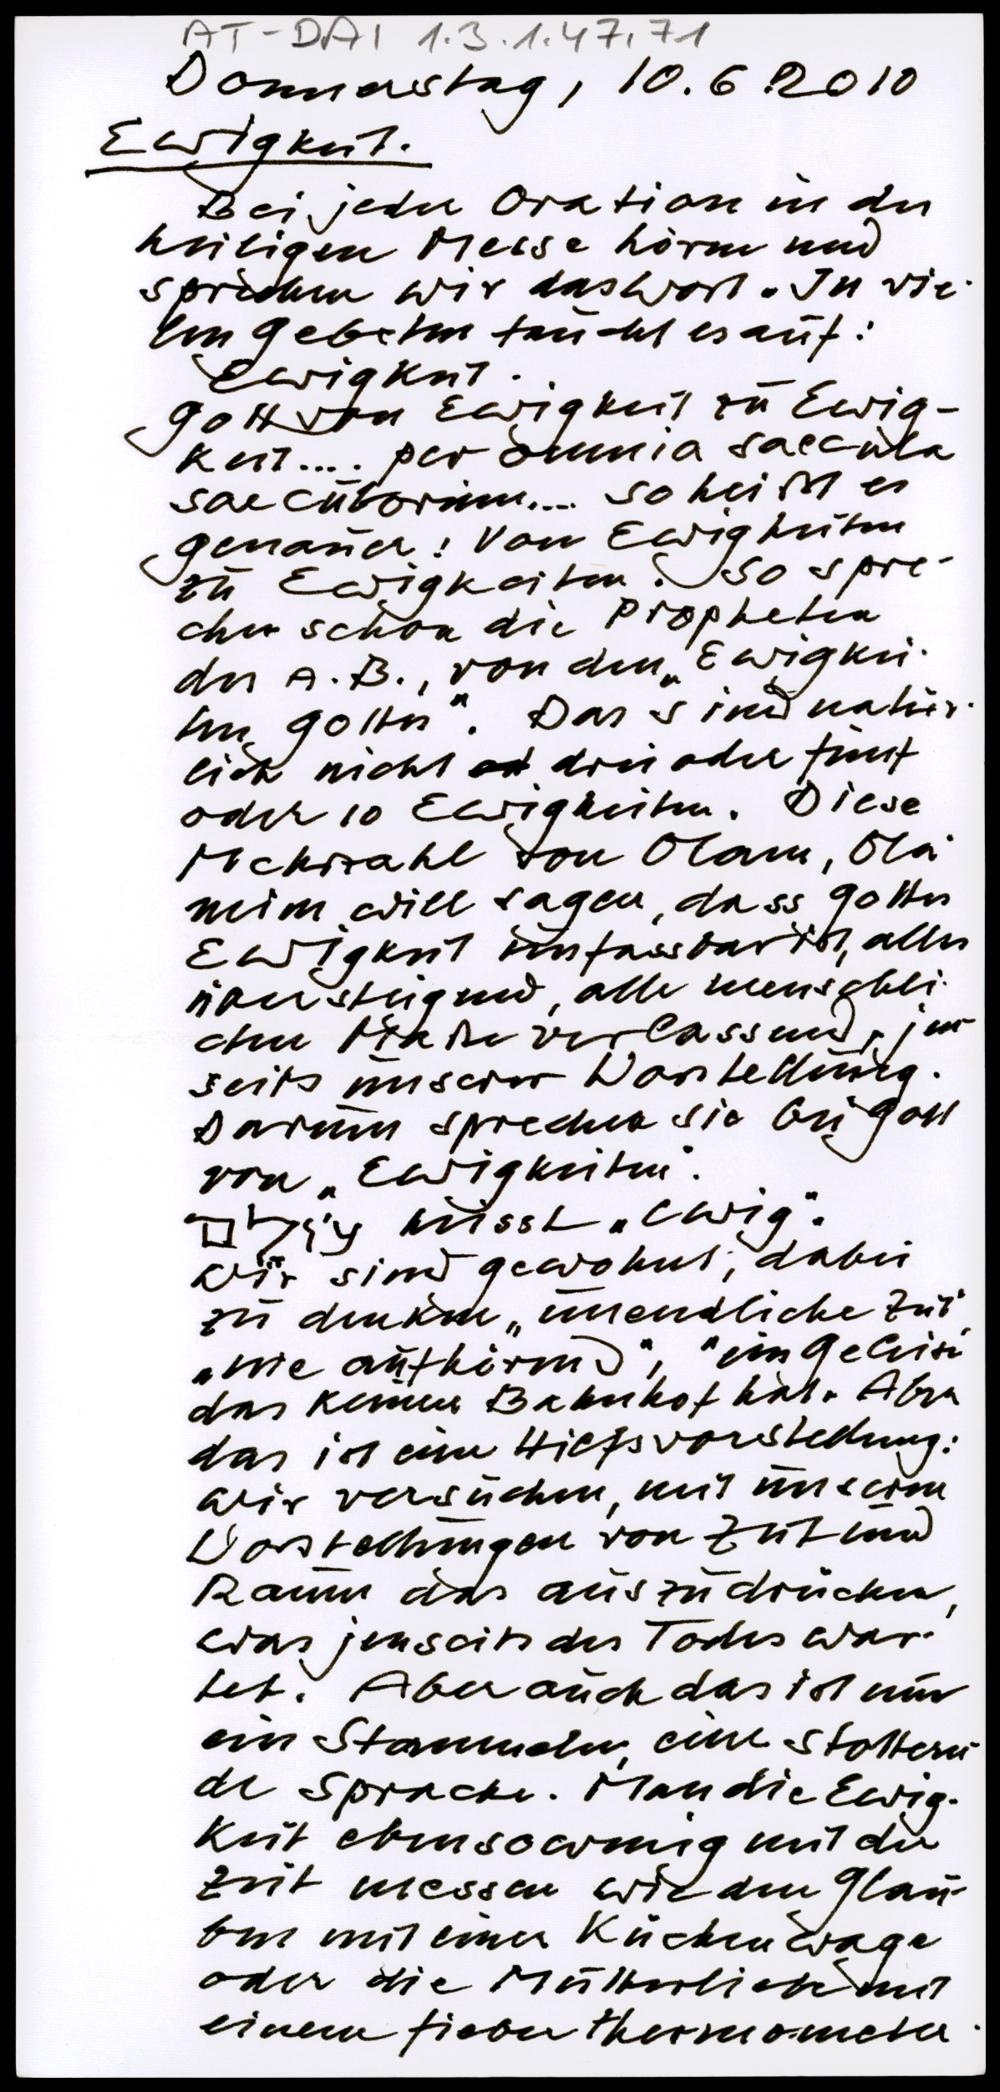 AT-DAI 1.3.1.47.71
Donnerstag, 10.6.2010
Ewigkeit.
Bei jeder Oration in der
heiligen Messe hören und
sprechen wir das Wort. In vie-
len Gebeten taucht es auf:
Ewigkeit.
Gott von Ewigkeit zu Ewig-
keit.... per omnia saecula
saeculorum.... so heißt es
genauer: Von Ewigkeiten
zu Ewigkeiten. So spre-
chen schon die Propheten
des A.B., von den „Ewigkei-
ten Gottes". Das sind natür-
lich nicht drei oder fünf
oder 10 Ewigkeiten. Diese
Mehrzahl von Olam, Ola
meim will sagen, dass Gottes
Ewigkeit unfassbar ist, alles
übersteigend, alle menschli-
chen Maße verlassend, jen-
seits unserer Vorstellung.
Darum sprechen sie bei Gott
von „Ewigkeiten".
עולם heisst „ewig".
Wir sind gewohnt, dabei
zu denken „unendliche Zeit"
„nie aufhörend", "ein Geleise
das keinen Bahnhof hat. Aber
das ist eine Hilfsvorstellung:
wir versuchen, mit unseren
Vorstellungen von Zeit und
Raum das auszudrücken,
was jenseits des Todes war-
tet. Aber auch das ist nur
ein Stammeln, eine stottern
de Sprache. Man die Ewig-
keit ebensowenig mit der
Zeit messen wie den Glau-
ben mit einer Küchenwage
oder die Mutterliebe mit
einem Fieberthermometer.